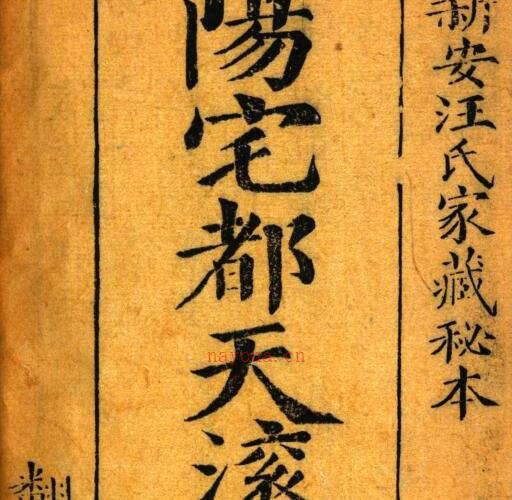 新安汪氏家藏秘本
陽宅都天滚
翻
nayona.cn